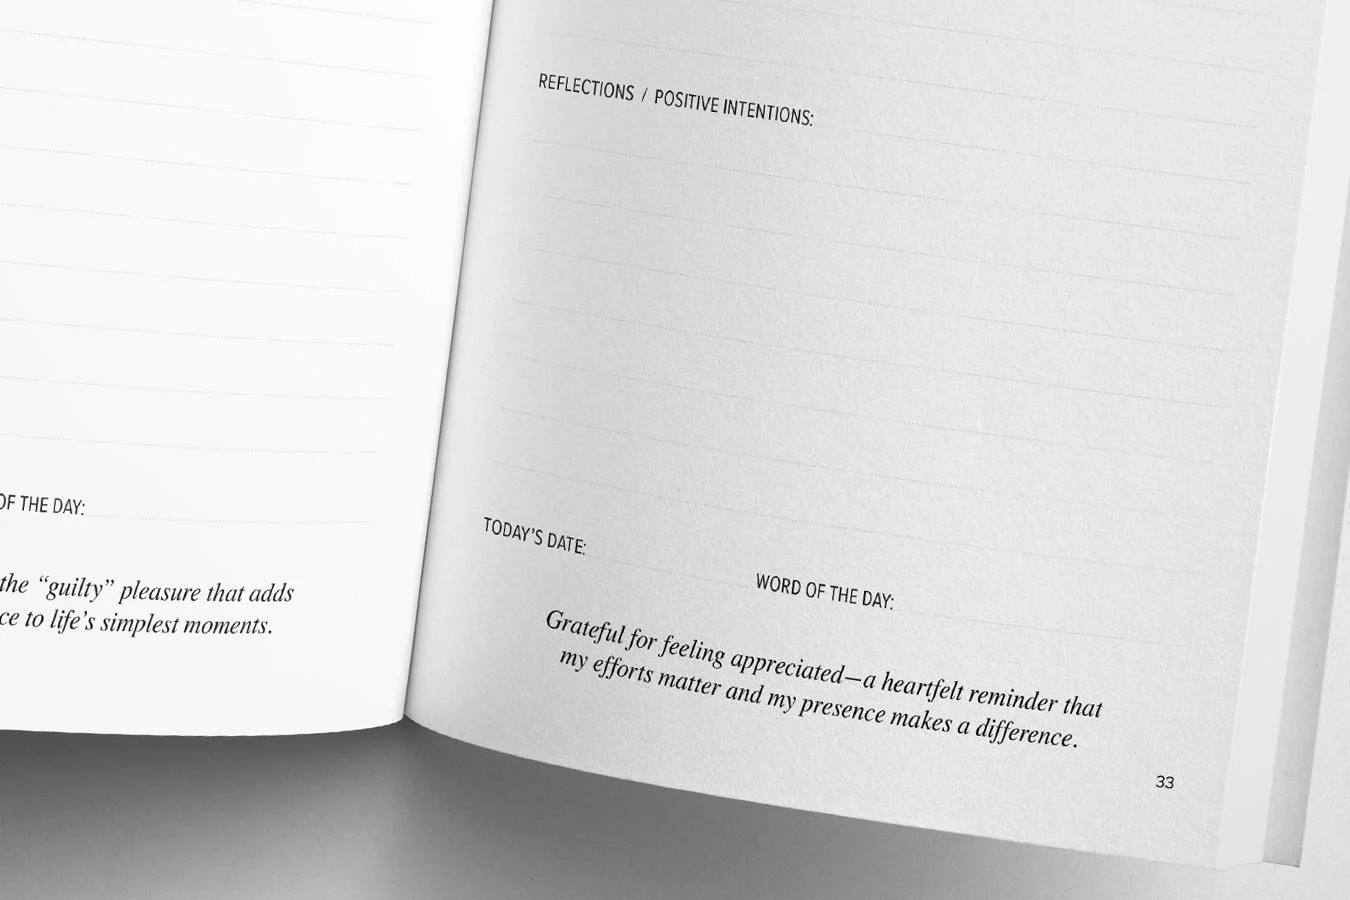 OF THE DAY:
the “guilty” pleasure that adds
ce to life’s simplest moments.
REFLECTIONS / POSITIVE INTENTIONS:
TODAY’S DATE:
WORD OF THE DAY:
Grateful for feeling appreciated—a heartfelt reminder that
my efforts matter and my presence makes a difference.
33